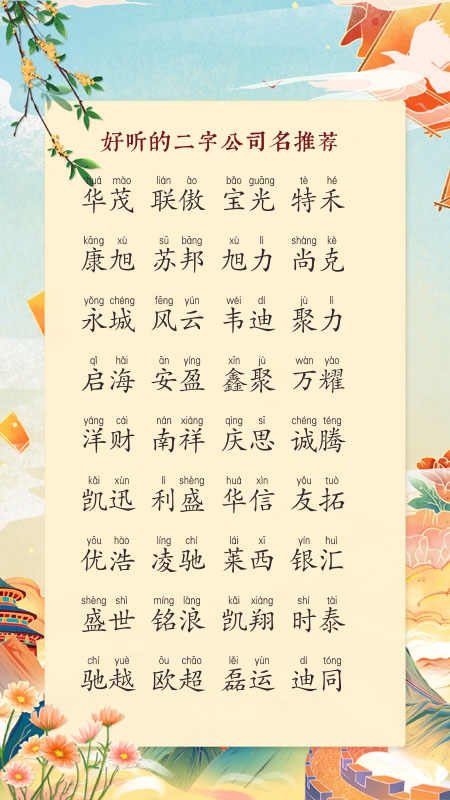 好听的二字公司名推荐
huá mào lián ào bǎo guāng tè hé
华茂 联傲 宝光 特禾
kāng xù sū bāng xù lì shàng kè
康旭 苏邦 旭力 尚克
yǒng chéng fēng yún wéi dí jù lì
永城 风云 韦迪 聚力
qǐ hǎi ān yíng xīn jù wàn yào
启海 安盈 鑫聚 万耀
yáng cái nán xiáng qìng sī chéng téng
洋财 南祥 庆思 诚腾
kǎi xùn lì shèng huá xìn yǒu tuò
凯迅 利盛 华信 友拓
yōu hào líng chí lái xī yín huì
优浩 凌驰 莱西 银汇
shèng shì míng làng kǎi xiáng shí tài
盛世 铭浪 凯翔 时泰
chí yuè ōu chāo lěi yùn dí tóng
驰越 欧超 磊运 迪同